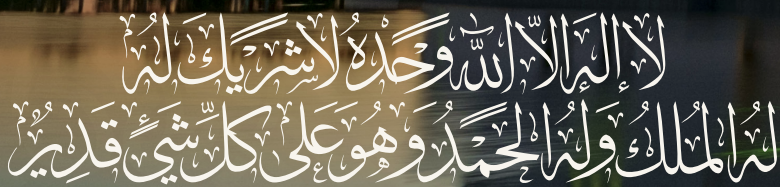 لا إله إلا الله وحده لا شريك له
له الملك وله الحمد وهو على كل شيء قدير